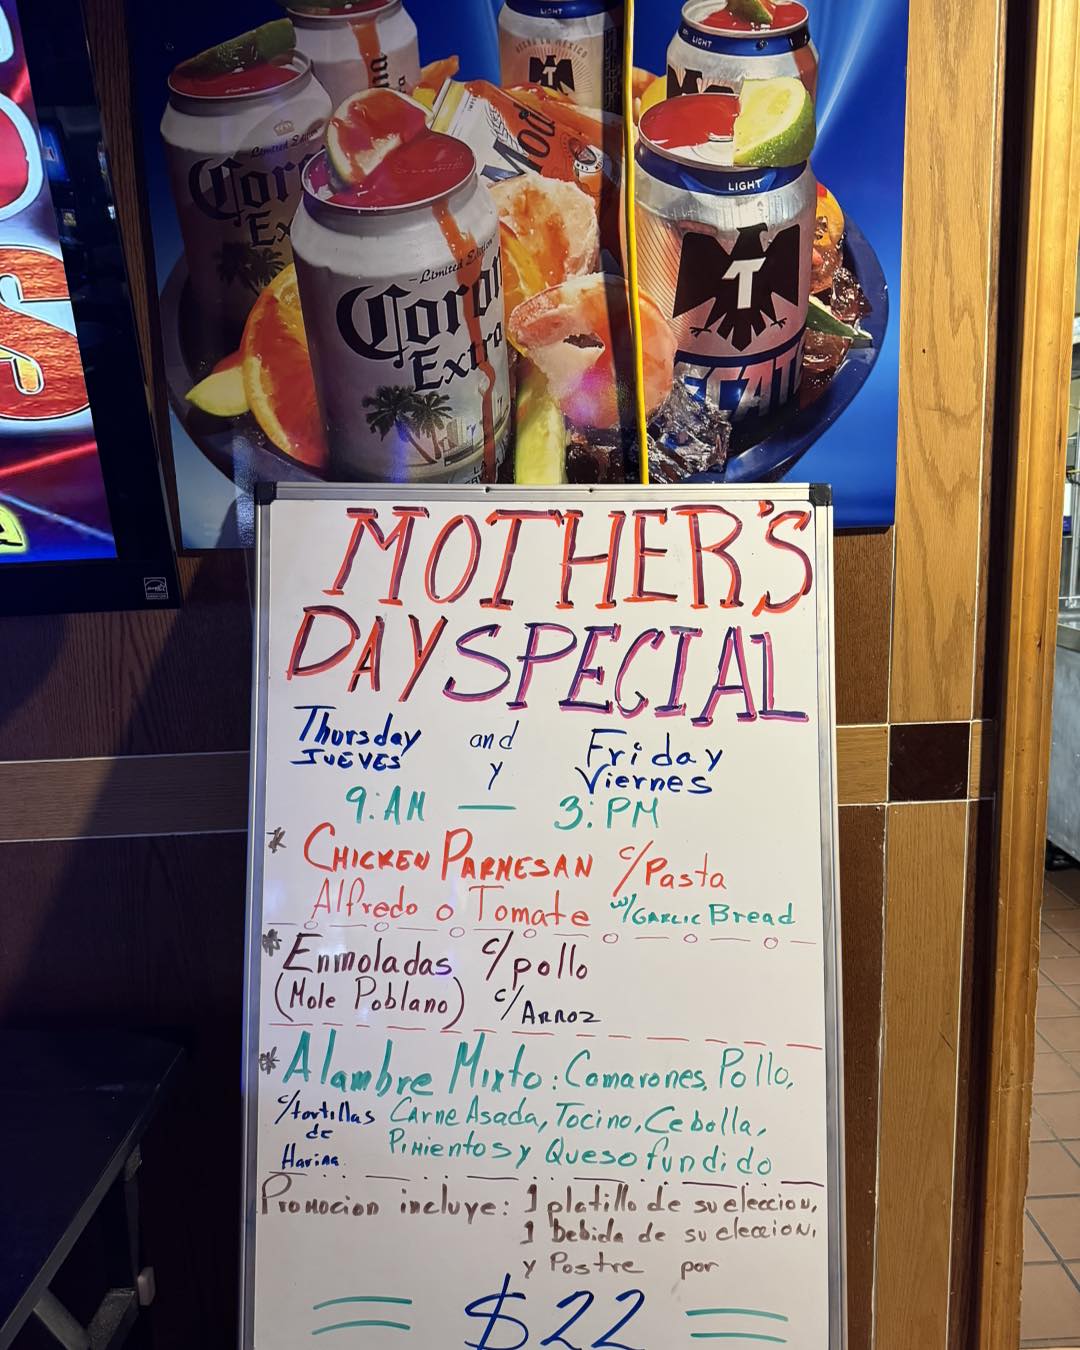 LIGHT
LIGHT
Limited Edition
Cor
Ex
Mod
LIGHT
T
Limited Edition
Coron
Extra
ECAT
MOTHER'S
DAY SPECIAL
Thursday and Friday
JUEVES y Viernes
9:AM — 3:PM
* CHICKEN PARMESAN c/Pasta
Alfredo o Tomate w/GARLIC Bread
* Enmoladas c/pollo
(Mole Poblano) c/ARROZ
* Alambre Mixto: Camarones, Pollo,
c/tortillas de Harina
Carne Asada, Tocino, Cebolla,
Pimientos y Queso fundido
Promocion incluye: 1 platillo de su eleccion,
1 bebida de su eleccion,
y Postre por
$22